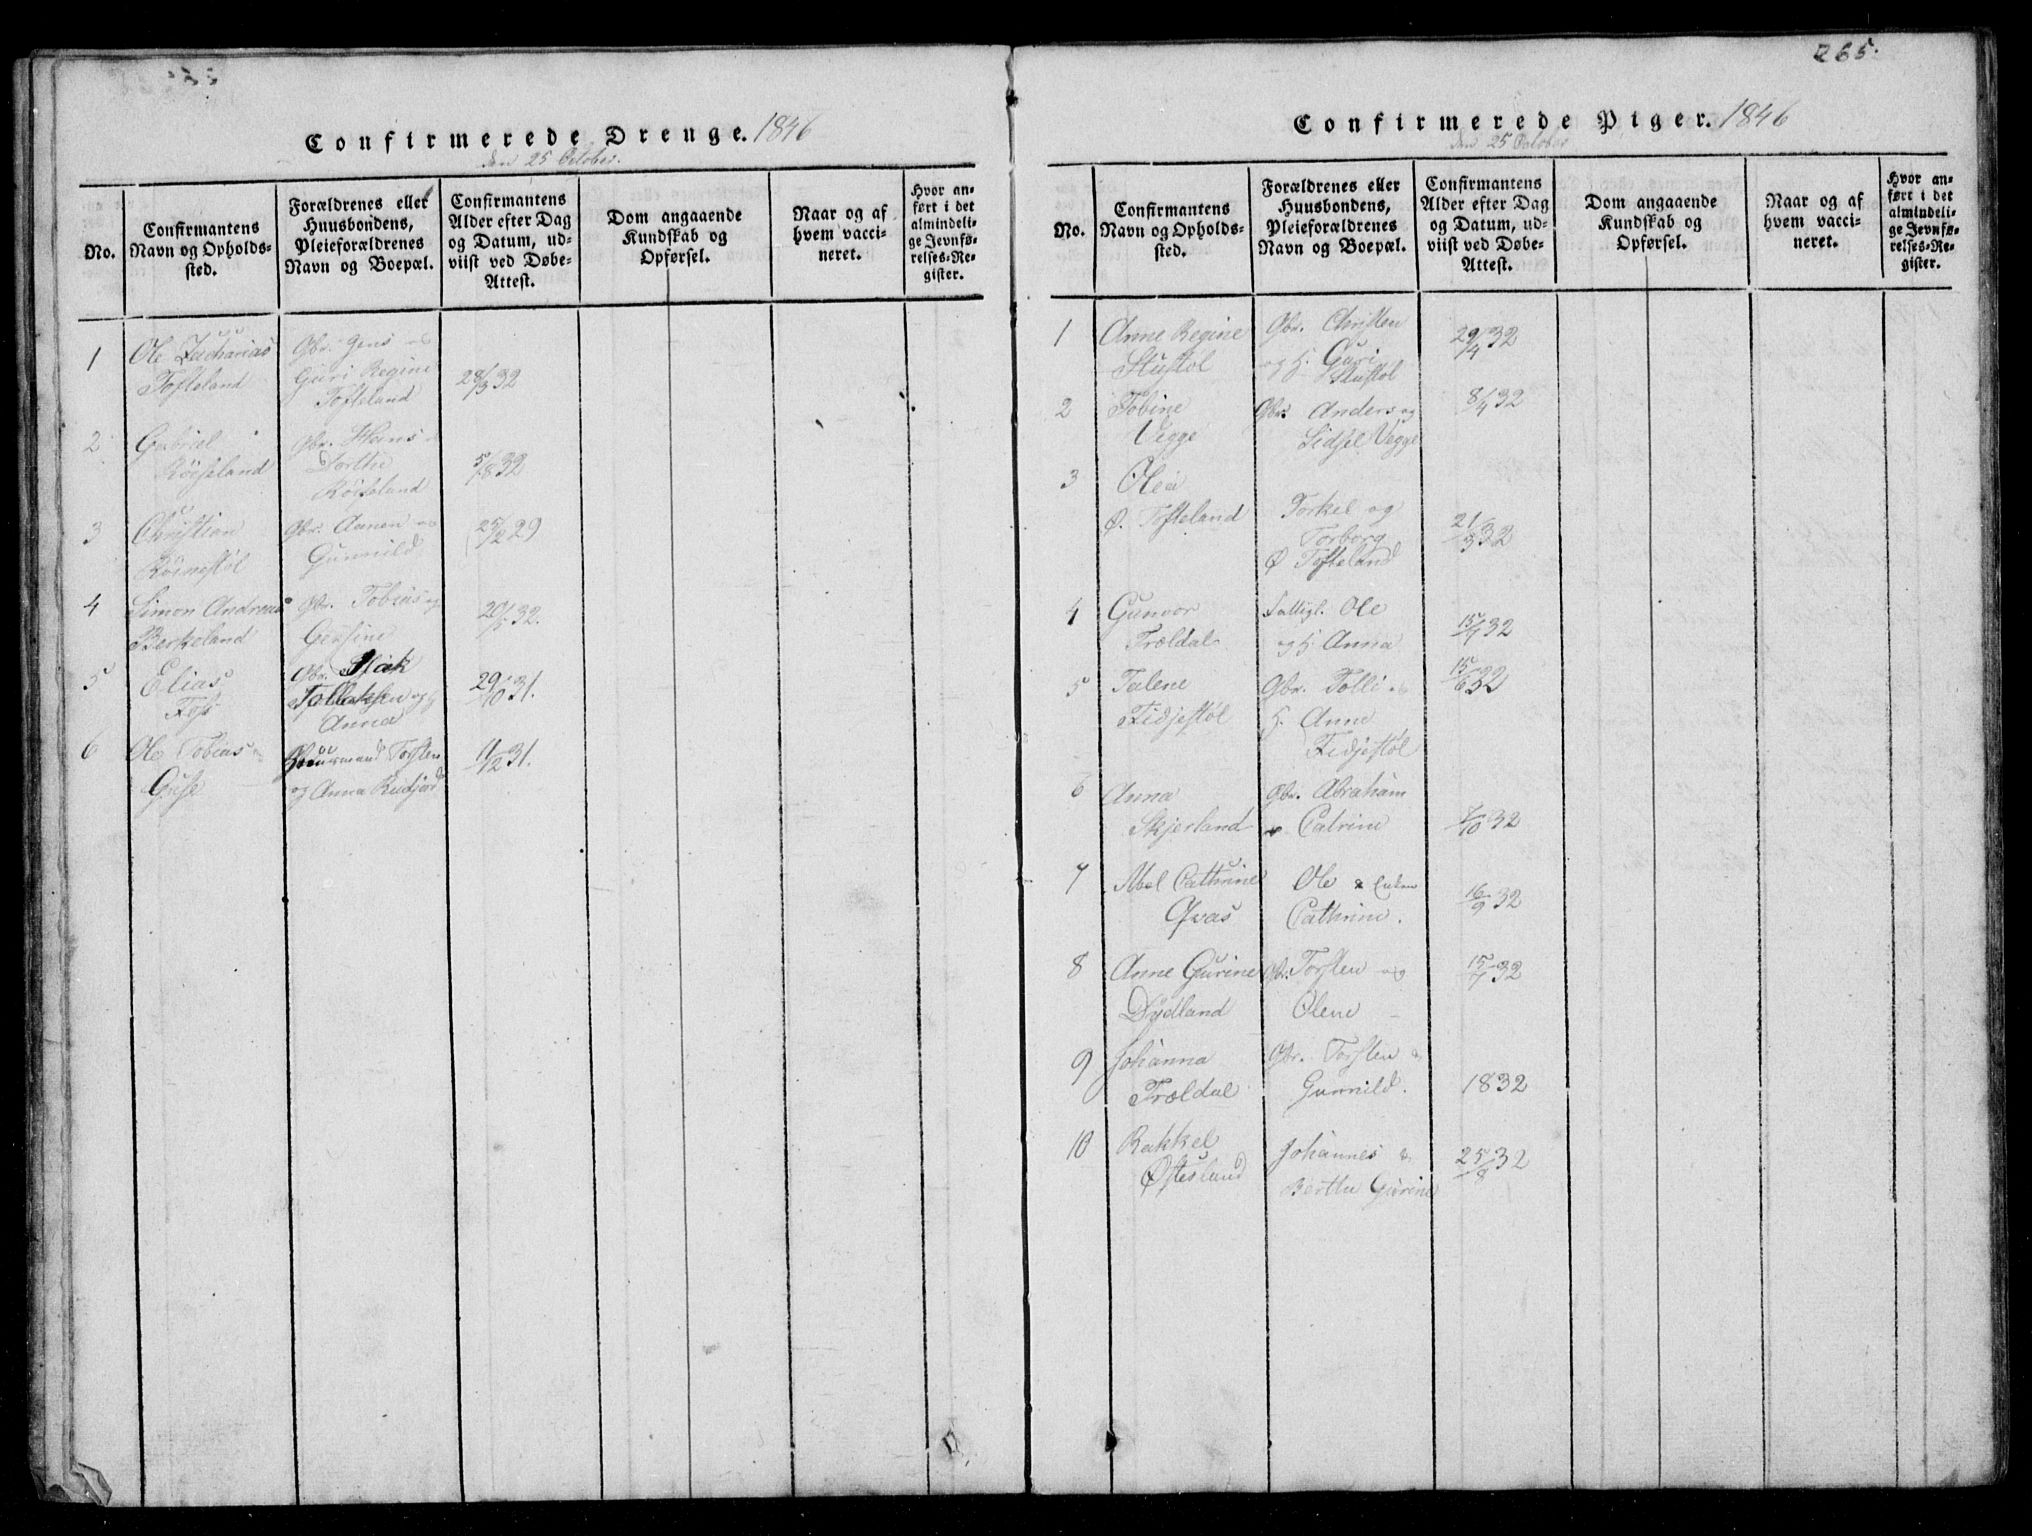 265.
Confirmerede Drenge. 1846
den 25 October.
No.
Confirmantens
Navn og Opholds-
sted.
Forældrenes eller
Huusbondens,
Pleieforældrenes
Navn og Boepæl.
Confirmantens
Alder efter Dag
og Datum, ud-
viist ved Døbe-
Attest.
Dom angaaende
Kundskab og
Opførsel.
Naar og af
hvem vacci-
neret.
Hvor an-
ført i det
almindeli-
ge Jevnfø-
relses-Re-
gister.
1
Ole Zacharias
Tofteland
Gbr. Jens og
Guri Regine
Tofteland
28/3 32
2
Gabriel
Röiseland
Gbr. Hans
Dorthe
Röiseland
5/8 32
3
Christian
Röinestöl
Gbr. Aanen og
Gunnild
25/12 29
4
Simon Andreas
Berkeland
Gbr. Tobias og
Gersine
20/5 32.
5
Elias
Foss
Gbr.
Tollaksen og
Anna
29/10 31.
6
Ole Tobias
Guse
Huusmand Torsten
og Anna
11/12 31.
Confirmerede Piger. 1846
den 25 October
No.
Confirmantens
Navn og Opholds-
sted.
Forældrenes eller
Huusbondens,
Pleieforældrenes
Navn og Boepæl.
Confirmantens
Alder efter Dag
og Datum, ud-
viist ved Døbe-
Attest.
Dom angaaende
Kundskab og
Opførsel.
Naar og af
hvem vacci-
neret.
Hvor an-
ført i det
almindeli-
ge Jevnfø-
relses-Re-
gister.
1
Anne Regine
Stustöl
Gbr. Christen
og H. Guri
Stustöl
29/4 32
2
Tobine
Vegge
Gbr. Anders og
Sidsel Vegge
8/4 32
3
Olea
Ø. Tofteland
Torkel og
Torborg
Ø Tofteland
21/3 32
4
Gunvor
Trældal
Fattigl. Ole
og H. Anna
15/7 32
5
Talene
Fidjestöl
Gbr. Tolli og
H. Anne
Fidjestöl
15/6 32
6
Anna
Skjerland
Gbr. Abraham
og Catrine
7/10 32
7
Abel Cathrine
Qvas
Ole & Enken
Cathrine.
16/9 32
8
Anne Gurine
Dydland
Gbr. Torsten og
Olene
15/7 32
9
Johanna
Trældal
Gbr. Torsten &
Gunnild.
1832
10
Rakkel
Østesland
Johannes &
Berthe Gurine
25/8 32